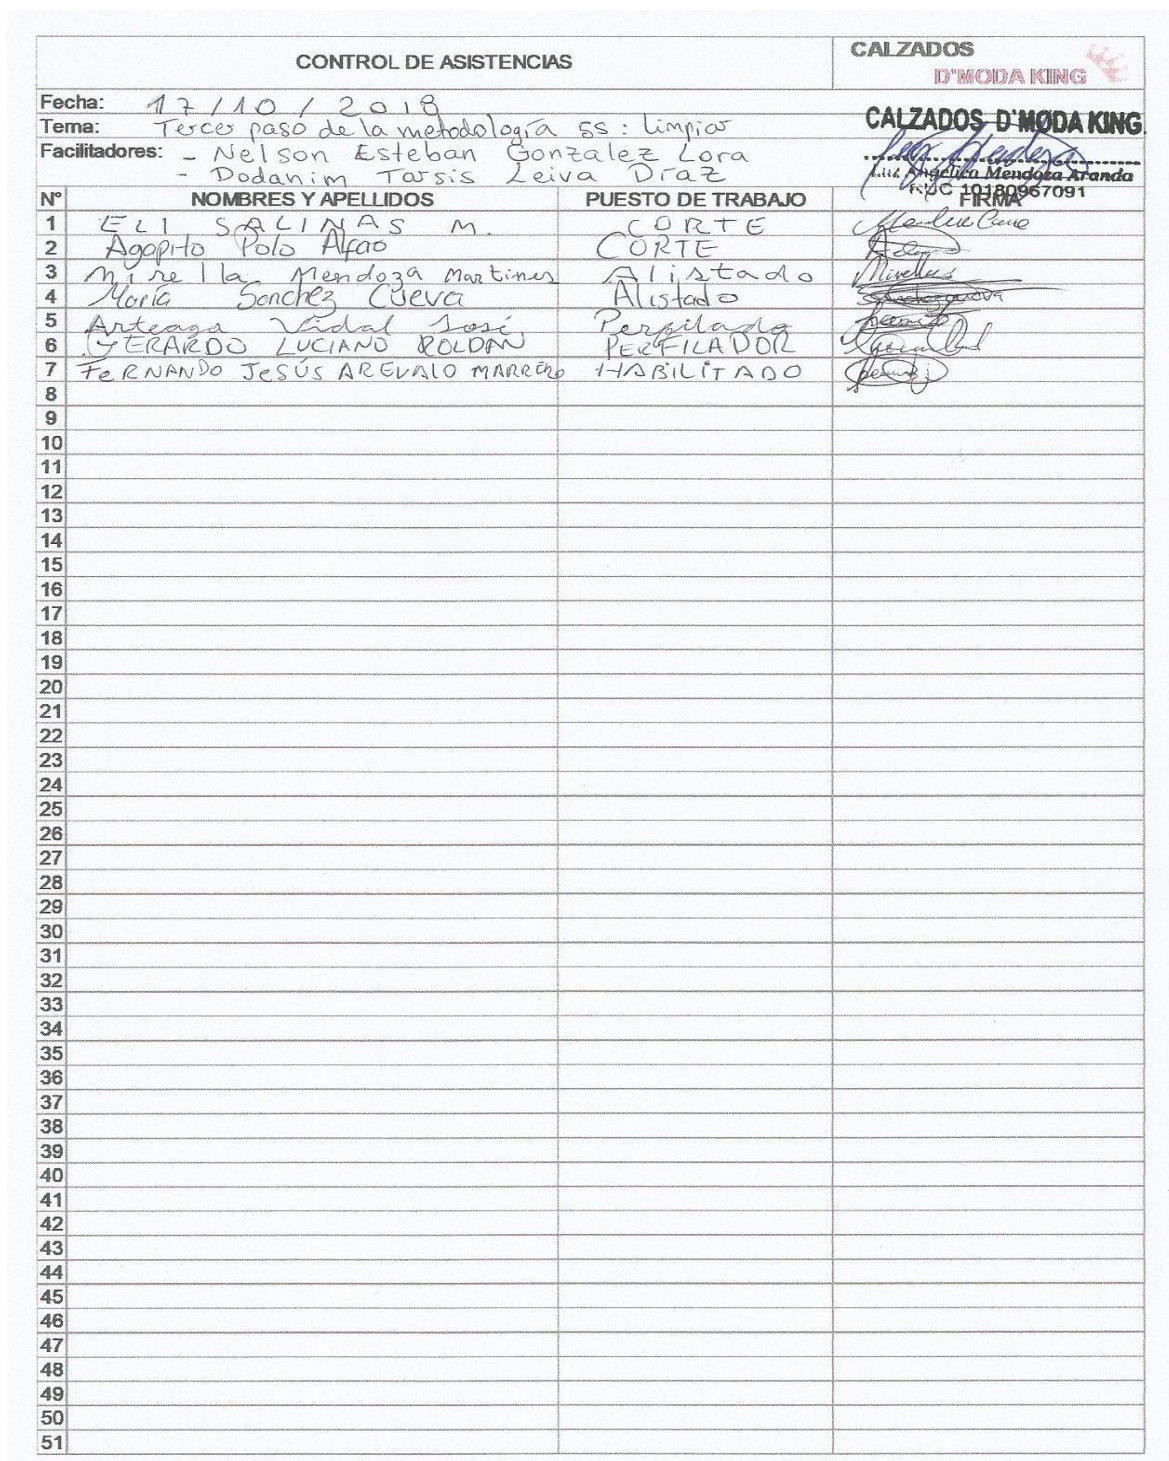 CONTROL DE ASISTENCIAS
CALZADOS
D'MODA KING
Fecha: 17/10/2018
Tema: Tercer paso de la metodología 5S: Limpiar
Facilitadores: - Nelson Esteban Gonzalez Lora
- Dodanim Tarsis Leiva Díaz
CALZADOS D'MODA KING
Luz Angélica Mendoza Aranda
RUC 10180967091
N° NOMBRES Y APELLIDOS PUESTO DE TRABAJO FIRMA
1 ELI SALINAS M. CORTE
2 Agapito Polo Alfaro CORTE
3 Mirella Mendoza Martines Alistado Mirella
4 María Sanchez Cueva Alistado
5 Arteaga Vidal José, Perfilado
6 GERARDO LUCIANO ROLDAN PERFILADOR
7 FERNANDO JESÚS AREVALO MARREÑO HABILITADO
8
9
10
11
12
13
14
15
16
17
18
19
20
21
22
23
24
25
26
27
28
29
30
31
32
33
34
35
36
37
38
39
40
41
42
43
44
45
46
47
48
49
50
51